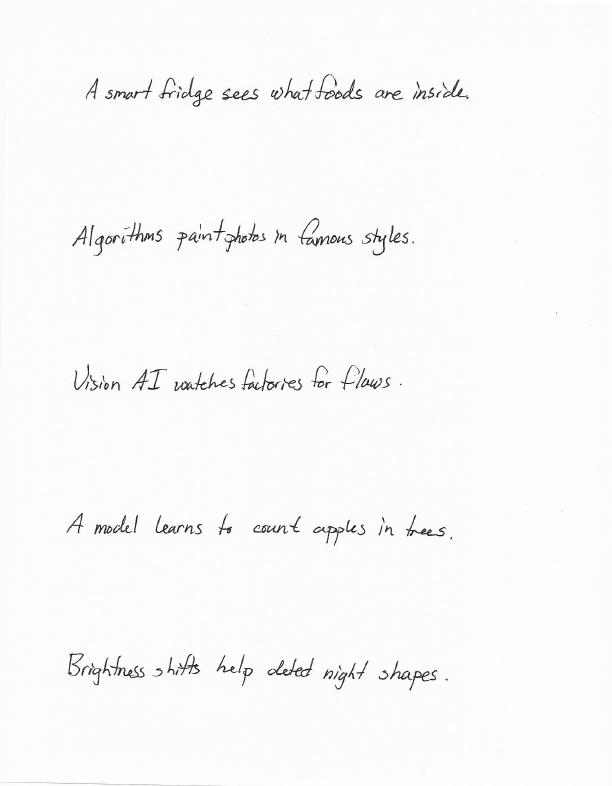 A smart fridge sees what foods are inside.
Algorithms paint photos in famous styles.
Vision AI watches factories for flaws.
A model learns to count apples in trees.
Brightness shifts help detect night shapes.